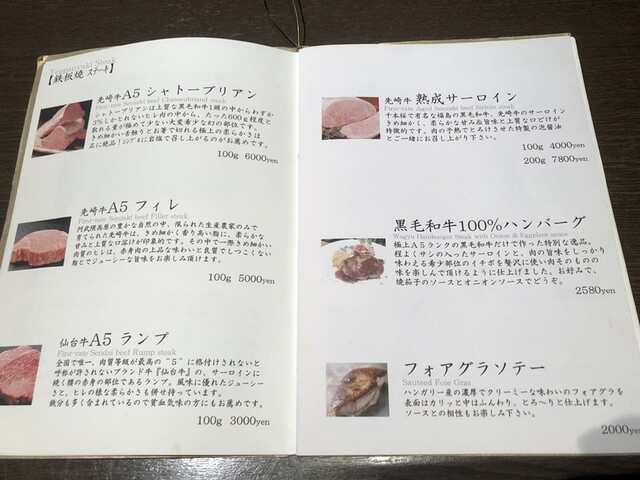 Teppanyaki Steak
【鉄板焼 ステーキ】
先崎牛 A5 シャトーブリアン
First-rate Senzaki beef Chateaubriand steak
シャトーブリアンは上質な黒毛和牛1頭の中からわずか
3%しかとれないヒレ肉の中から、たった600g程度と
取れる量が極めて少ない大変希少な幻の部位です。
きめ細かい舌触りとお箸で切れる極上の柔らかさは
正に絶品！シンプルに岩塩で召し上がるのがお薦めです。
100g 6000yen
先崎牛 A5 フィレ
First-rate Senzaki beef Fillet steak
阿武隈高原の豊かな自然の中、限られた生産農家のみで
育てられた先崎牛は、きめ細かく香り高い脂に、柔らかな
甘みと上質な口溶けが印象的です。その中で一際きめ細かい
肉質のヒレは、赤身肉の上品な味わいと良質でしつこくない
脂とでジューシーな旨味をお楽しみ頂けます。
100g 5000yen
仙台牛 A5 ランプ
First-rate Sendai beef Rump steak
全国で唯一、肉質等級が最高の"5"に格付けされないと
呼称が許されないブランド牛『仙台牛』の、サーロインに
続く腰の赤身の部位であるランプ。風味に優れたジューシー
さと、ヒレの様な柔らかさも併せ持っています。
鉄分も多く含まれているので貧血気味の方にもお薦めです。
100g 3000yen
先崎牛 熟成サーロイン
First-rate Aged Senzaki beef Sirloin steak
千本桜で有名な福島の黒毛和牛、先崎牛のサーロイン
きめ細かく、柔らかな甘み&旨味と上質な口どけが
特徴的です。肉の千熱でとろけさせた特製の泡醤油
とご一緒にお召し上がり下さい。
100g 4000yen
200g 7800yen
黒毛和牛100%ハンバーグ
Wagyu Hamburger Steak with Onion & Eggplant sauce
極上A5ランクの黒毛和牛だけで作った特別な逸品。
程よくサシの入ったサーロインと、肉の旨味をしっかり
味わえる希少部位のイチボを贅沢に使い肉そのものの
味を楽しんで頂けるように仕上げました。お好みで、
焼茄子のソースとオニオンソースでどうぞ。
2580yen
フォアグラソテー
Sauteed Foie Gras
ハンガリー産の濃厚でクリーミーな味わいのフォアグラを
表面はカリッと中はふんわり、とろ〜りと仕上げます。
ソースとの相性もお楽しみ下さい。
2000yen